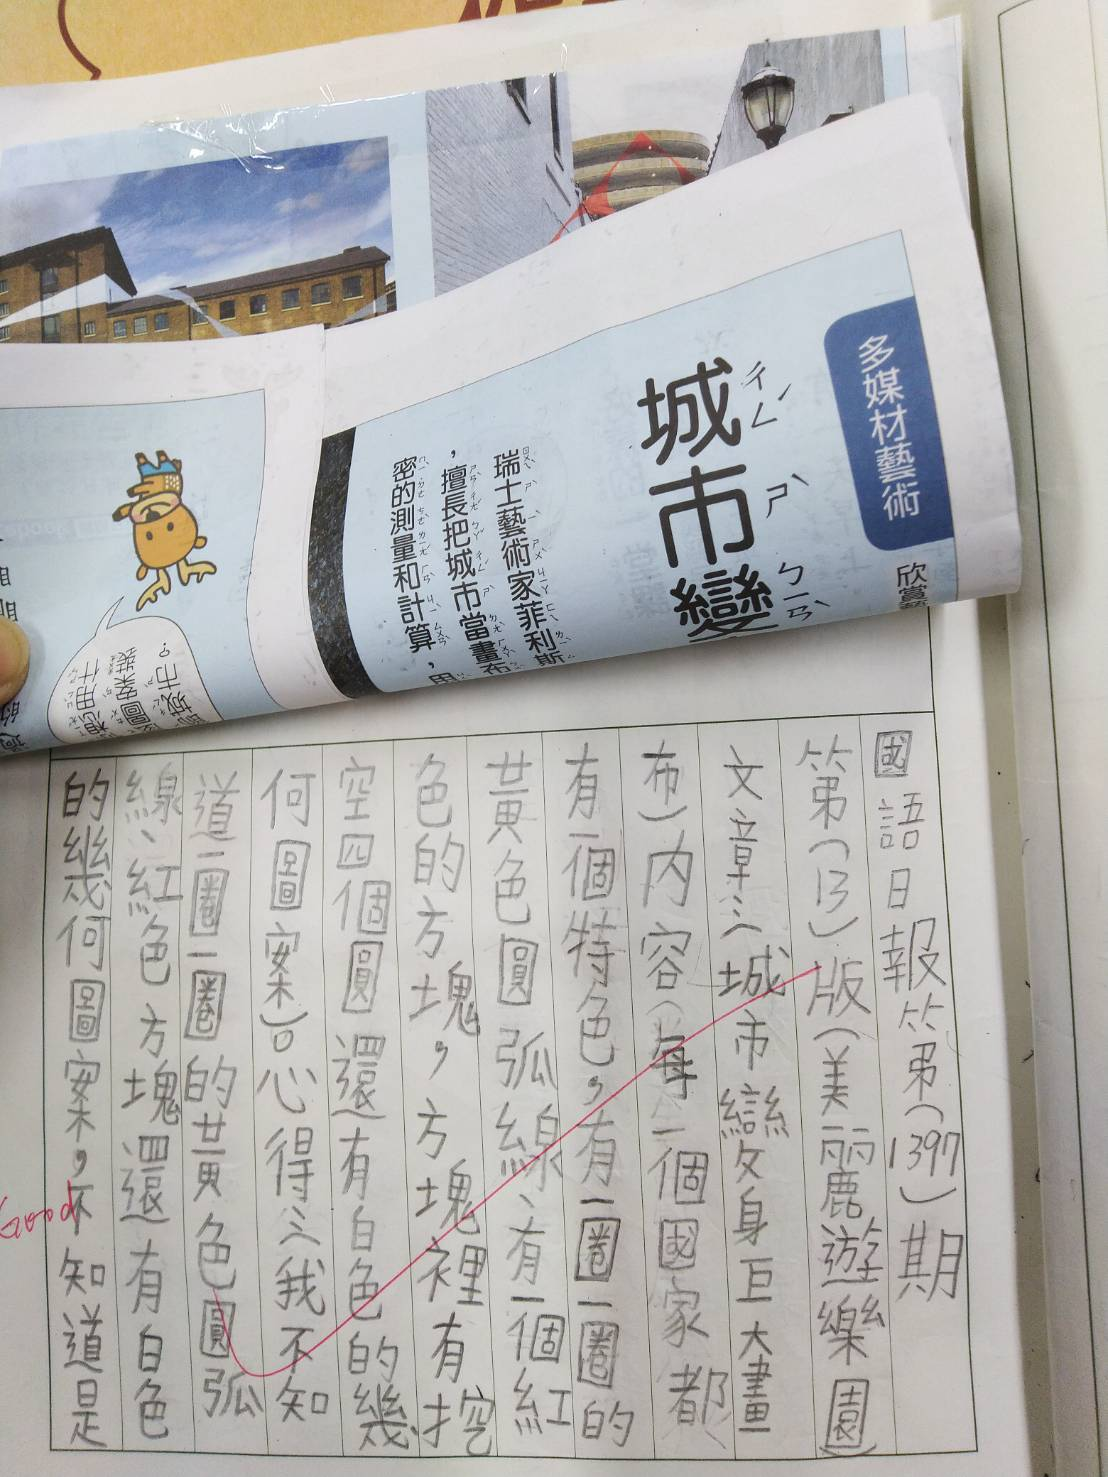 多媒材藝術
欣賞
城市變
瑞士藝術家菲利斯
，擅長把城市當畫布
密的測量和計算，用
城市。
圖案裝
想用什
國語日報第(1397)期
第(13)版(美麗遊樂園)
文章:城市變身巨大畫
布)內容(每一個國家都
有一個特色,有一圈一圈的
黃色圓弧線、有一個紅
色的方塊,方塊裡有挖
空四個圓還有白色的幾
何圖案)。心得:我不知
道一圈一圈的黃色圓弧
線、紅色方塊還有白色
的幾何圖案,不知道是
Good